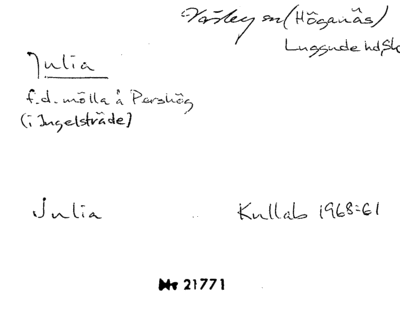 Väsby sn (Höganäs)
Luggude hd, Sk
Julia
f.d. mölla å Pershög
(i Ingelsträde)
Julia Kullab 1968:61
Nr 21771